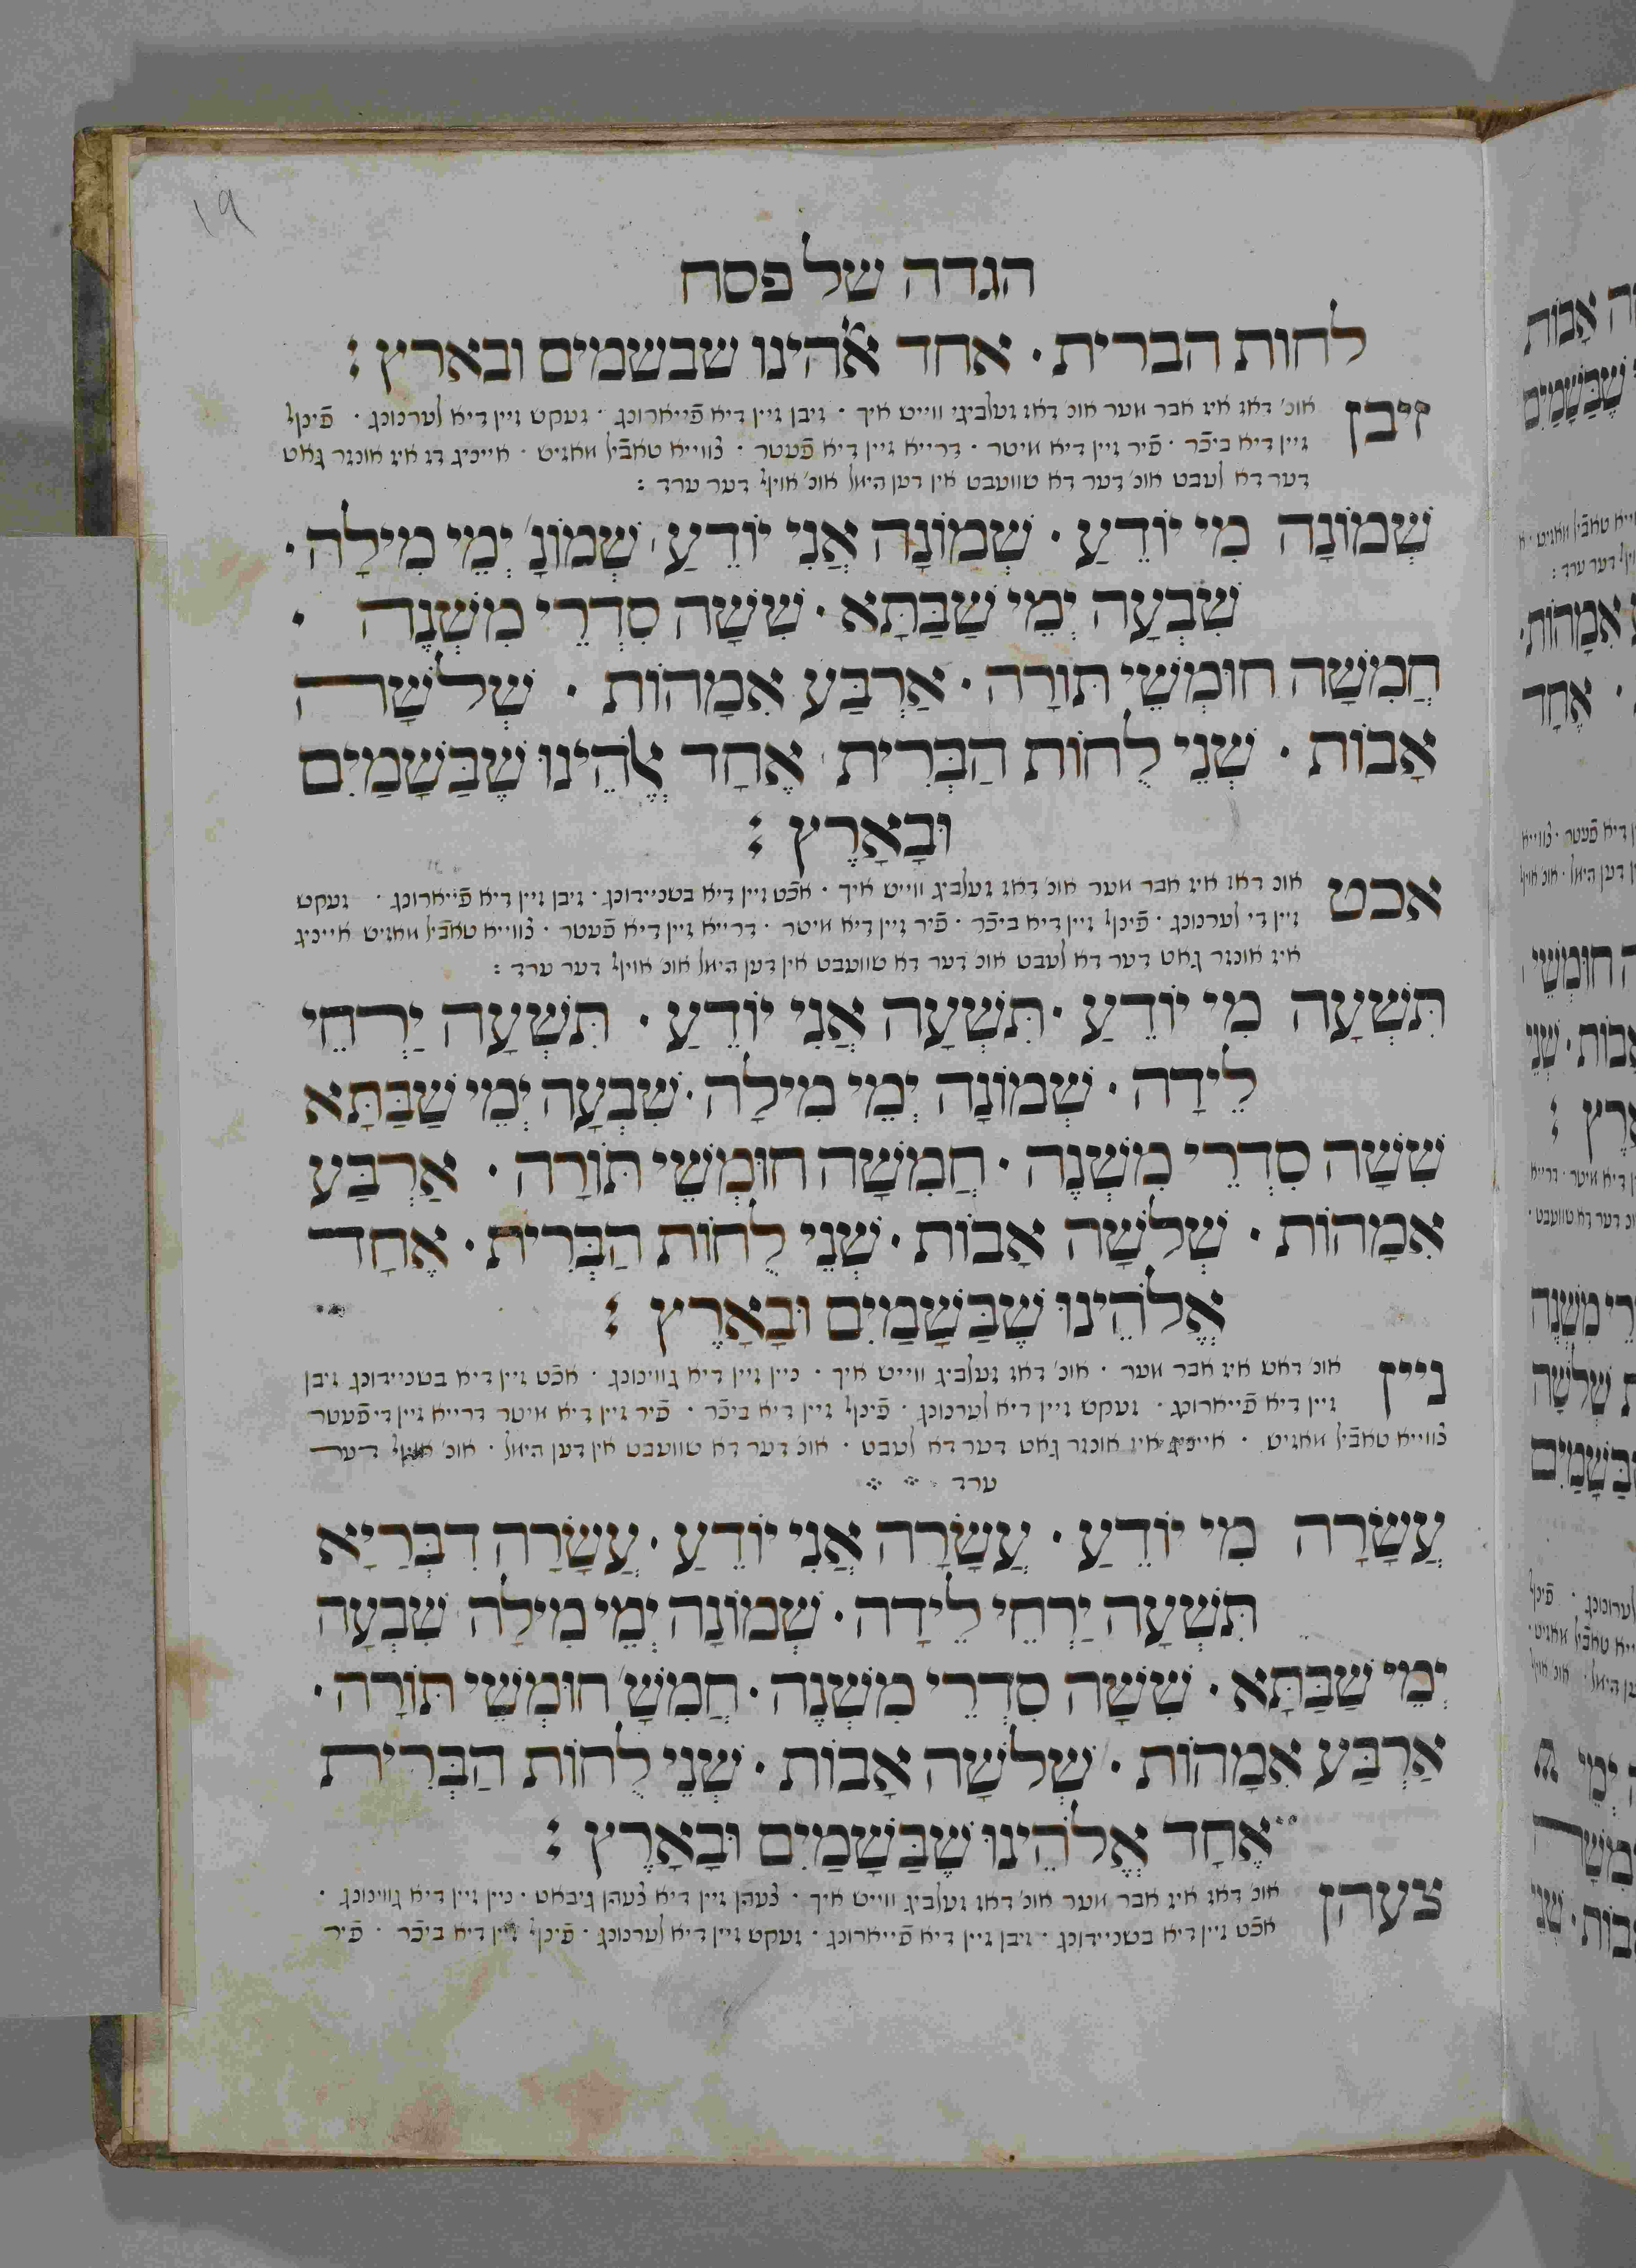 19
הגדה של פסח
לחות הברית · אחד אלהינו שבשמים ובארץ :
זיבן אונ' דאז איז אבר מער אונ' דאז זעלביגי ווייס איך · זיבן זיין דיא פֿייארונג · זעקס זיין דיא לערנונג · פֿינף
זיין דיא ביכֿר · פֿיר זיין דיא מיטר · דרייא זיין דיא פֿעטר · צווייא טאבֿיל מאזיס · אייניג דז איז אונזר גאט
דער דא לעבט אונ' דער דא שוועבט אין דען הימל אונ' אויף דער ערד :
שְׁמוֹנָה מִי יוֹדֵעַ · שְׁמוֹנָה אֲנִי יוֹדֵעַ · שְׁמוֹנָ' יְמֵי מִילָה ·
שִׁבְעָה יְמֵי שַׁבַּתָּא · שִׁשָּׁה סִדְרֵי מִשְׁנָה ·
חֲמִשָׁה חוּמְשֵׁי תּוֹרָה · אַרְבַּע אִמָהוֹת · שְׁלשָׁה
אָבוֹת · שְׁנֵי לֻחוֹת הַבְּרִית · אֶחָד אֱלֹהֵינוּ שֶׁבַּשָׁמַיִם
וּבָאָרֶץ :
אכט אונ דאז איז אבר מער אונ' דאז זעלביג ווייס איך · אכֿט זיין דיא בשניידונג · זיבן זיין דיא פֿייארונג · זעקס
זיין די לערנונג · פֿינף זיין דיא ביכֿר · פֿיר זיין דיא מיטר · דרייא זיין דיא פֿעטר · צווייא טאבֿיל מאזיס אייניג
איז אונזר גאט דער דא לעבט אונ' דער דא שוועבט אין דען הימל אונ' אויף דער ערד :
תִּשְׁעָה מִי יוֹדֵעַ · תִּשְׁעָה אֲנִי יוֹדֵעַ · תִּשְׁעָה יַרְחֵי
לֵידָה · שְׁמוֹנָה יְמֵי מִילָה · שִׁבְעָה יְמֵי שַׁבַּתָּא
שִׁשָּׁה סִדְרֵי מִשְׁנָה · חֲמִשָׁה חוּמְשֵׁי תּוֹרָה · אַרְבַּע
אִמָהוֹת · שְׁלשָׁה אָבוֹת · שְׁנֵי לֻחוֹת הַבְּרִית · אֶחָד
אֱלֹהֵינוּ שֶׁבַּשָׁמַיִם וּבָאָרֶץ :
ניין אונ' דאש איז אבר מער · אונ' דאז זעלביג ווייס איך · ניין זיין דיא גווינונג · אכֿט זיין דיא בשניידונג זיבן
זיין דיא פֿייארונג · זעקס זיין דיא לערנונג · פֿינף זיין דיא ביכֿר · פֿיר זיין דיא מיטר דרייא זיין די פֿעטר
צווייא טאבֿיל מאזיס · אייניג איז אונזר גאט דער דא לעבט · אונ' דער דא שוועבט אין דען הימל · אונ' אויף דער
ערד
עֲשָׂרָה מִי יוֹדֵעַ · עֲשָׂרָה אֲנִי יוֹדֵעַ · עֲשָׂרָה דִבְּרַיָא
תִּשְׁעָה יַרְחֵי לֵידָה · שְׁמוֹנָה יְמֵי מִילָה · שִׁבְעָה
יְמֵי שַׁבַּתָּא · שִׁשָּׁה סִדְרֵי מִשְׁנָה · חֲמִשָׁ' חוּמְשֵׁי תּוֹרָה ·
אַרְבַּע אִמָהוֹת · שְׁלשָׁה אָבוֹת · שְׁנֵי לֻחוֹת הַבְּרִית
אֶחָד אֱלֹהֵינוּ שֶׁבַּשָׁמַיִם וּבָאָרֶץ :
צעהן אונ' דאז איז אבר מער אונ' דאז זעלביג ווייס איך · צעהן זיין דיא צעהן גיבאט · ניין זיין דיא גווינונג ·
אכֿט זיין דיא בשניידונג · זיבן זיין דיא פֿייארונג · זעקס זיין דיא לערנונג · פֿינף זיין דיא ביכֿר · פֿיר